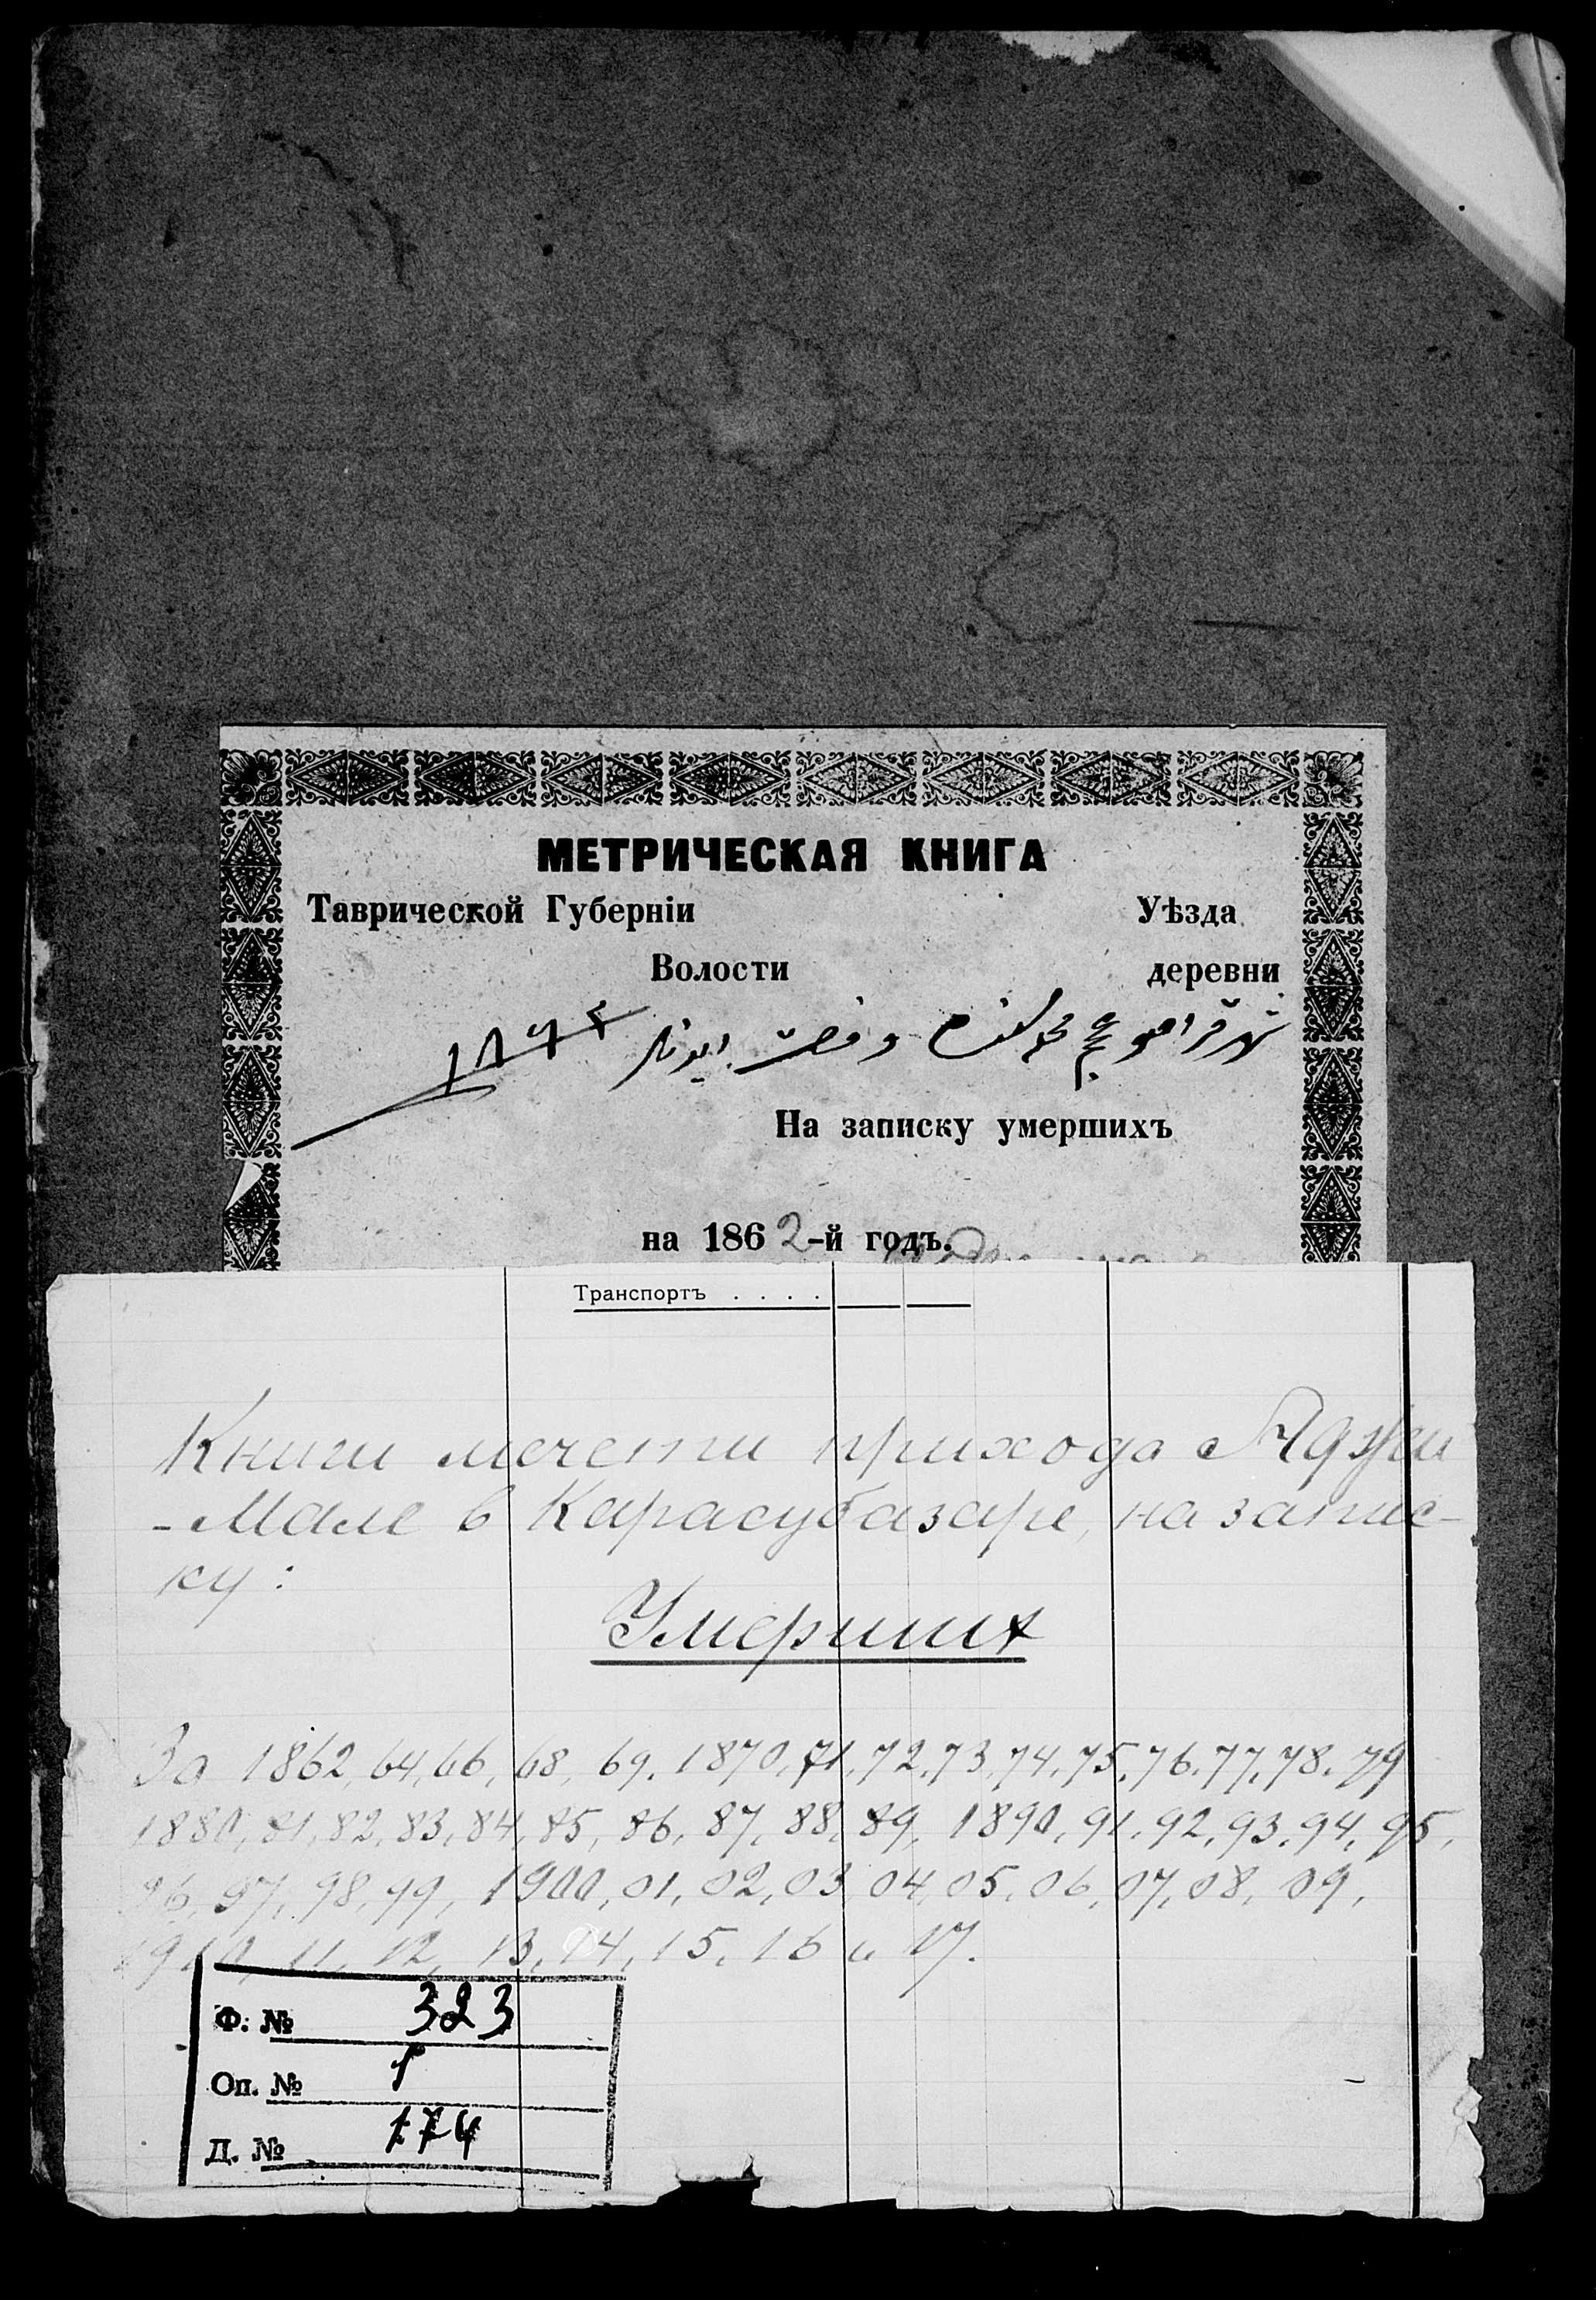 МЕТРИЧЕСКАЯ КНИГА
Таврической Губерніи Уѣзда
Волости деревни
١٨٦٢
На записку умершихъ
на 1862-й годъ.
Транспортъ . . . .
Книги мечети прихода Аджи
-Мале в Карасубазаре, на запис-
ку:
Умерших
За 1862, 64, 66, 68, 69. 1870, 71, 72, 73, 74, 75, 76, 77, 78, 79
1880, 81, 82, 83, 84, 85, 86, 87, 88, 89, 1890, 91, 92, 93, 94, 95,
96, 97, 98, 99, 1900, 01, 02, 03, 04, 05, 06, 07, 08, 09,
1910, 11, 12, 13, 14, 15, 16 и 17.
Ф. № 323
Оп. № 1
Д. № 174